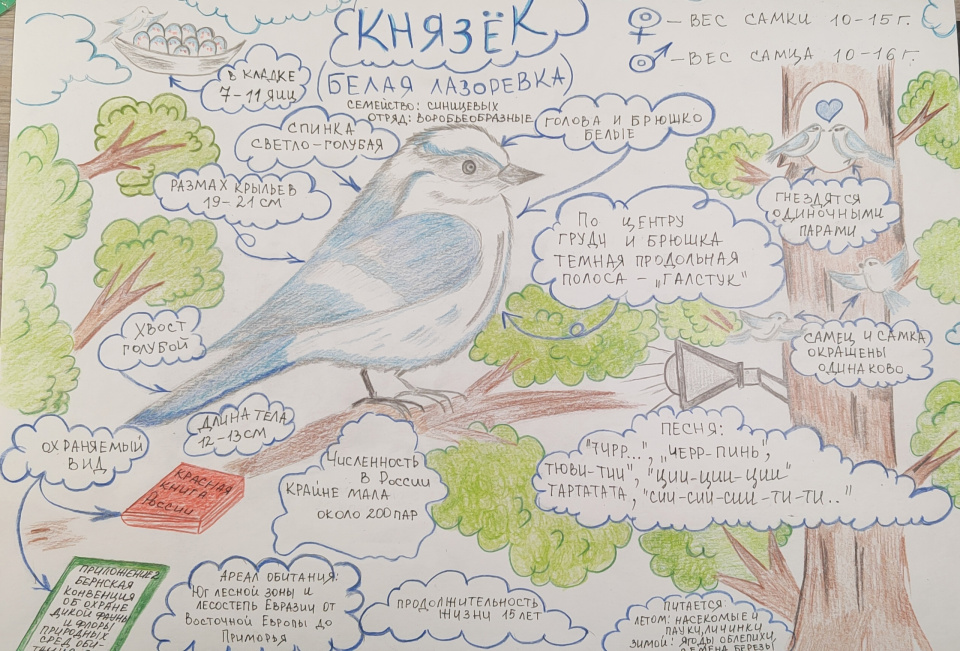 КНЯЗЁК
(БЕЛАЯ ЛАЗОРЕВКА)
СЕМЕЙСТВО: СИНИЦЕВЫХ
ОТРЯД: ВОРОБЬЕОБРАЗНЫЕ
♀ – ВЕС САМКИ 10-15 Г.
♂ – ВЕС САМЦА 10-16 Г.
В КЛАДКЕ
7-11 ЯИЦ
СПИНКА
СВЕТЛО-ГОЛУБАЯ
ГОЛОВА И БРЮШКО
БЕЛЫЕ
РАЗМАХ КРЫЛЬЕВ
19-21 СМ
ПО ЦЕНТРУ
ГРУДИ И БРЮШКА
ТЕМНАЯ ПРОДОЛЬНАЯ
ПОЛОСА – „ГАЛСТУК"
ГНЕЗДЯТСЯ
ОДИНОЧНЫМИ
ПАРАМИ
ХВОСТ
ГОЛУБОЙ
САМЕЦ И САМКА
ОКРАШЕНЫ
ОДИНАКОВО
ДЛИНА ТЕЛА
12-13 СМ
ОХРАНЯЕМЫЙ
ВИД
КРАСНАЯ
КНИГА
РОССИИ
ЧИСЛЕННОСТЬ
В РОССИИ
КРАЙНЕ МАЛА
ОКОЛО 200 ПАР
ПЕСНЯ:
"ЧИРР...", „ЧЕРР-ПИНЬ",
ТЮВИ-ТИИ", "ЦИИ-ЦИИ-ЦИИ"
ТАРТАТАТА, "СИИ-СИИ-СИИ-ТИ-ТИ.."
ПРИЛОЖЕНИЕ 2
БЕРНСКАЯ
КОНВЕНЦИЯ
ОБ ОХРАНЕ
ДИКОЙ ФАУНЫ
И ФЛОРЫ
ПРИРОДНЫХ
СРЕД ОБИ-
АРЕАЛ ОБИТАНИЯ:
ЮГ ЛЕСНОЙ ЗОНЫ И
ЛЕСОСТЕПЬ ЕВРАЗИИ ОТ
ВОСТОЧНОЙ ЕВРОПЫ ДО
ПРИМОРЬЯ
ПРОДОЛЖИТЕЛЬНОСТЬ
ЖИЗНИ 15 ЛЕТ
ПИТАЕТСЯ:
ЛЕТОМ: НАСЕКОМЫЕ И
ПАУКИ, ЛИЧИНКИ
ЗИМОЙ: ЯГОДЫ ОБЛЕПИХИ,
СЕМЕНА БЕРЕЗЫ